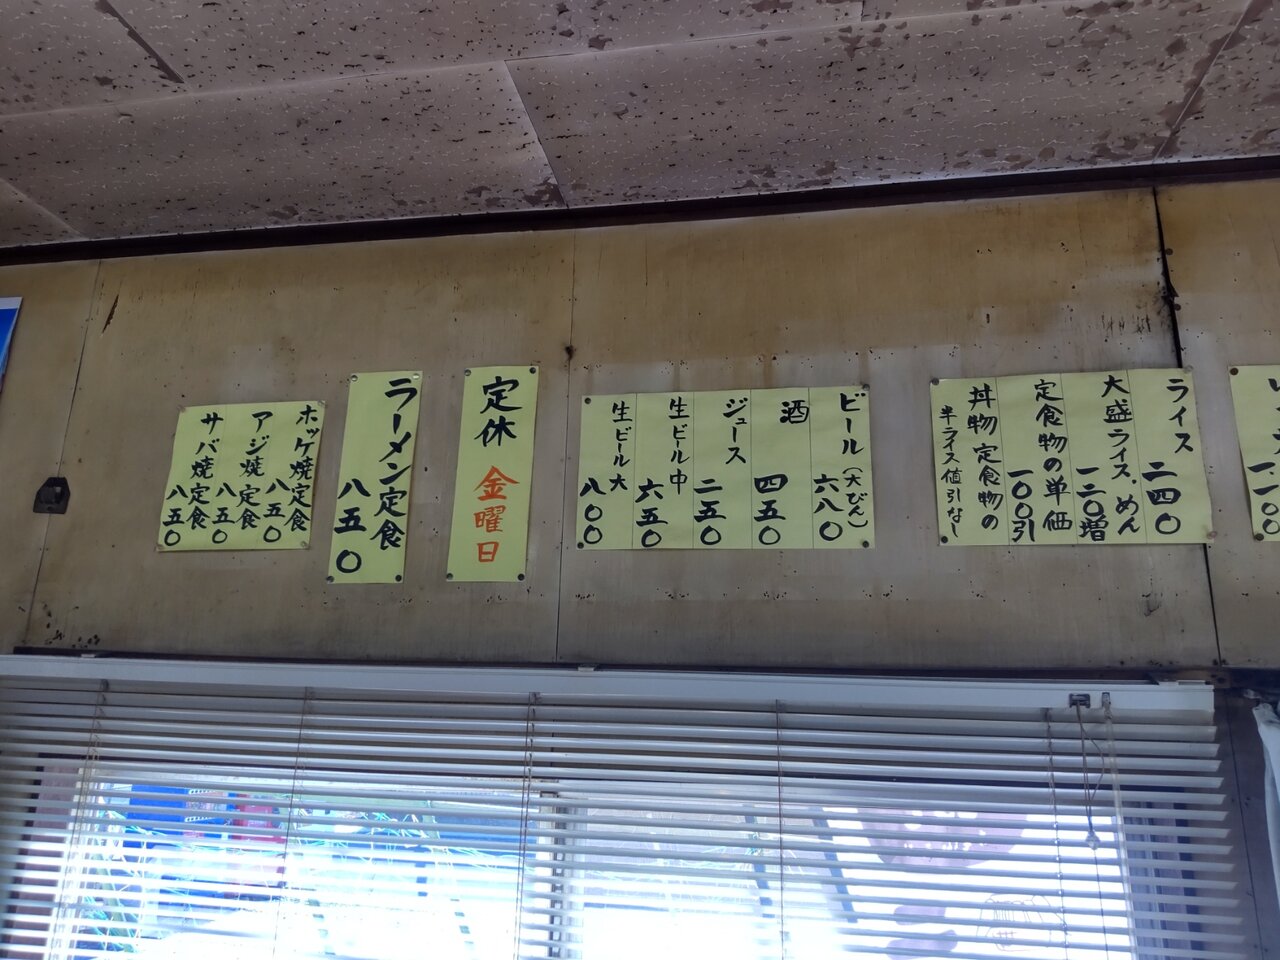 一一〇〇
ライス 二四〇
大盛ライス、めん 一二〇増
定食物の単価 一〇〇引
丼物定食物の
半ライス値引なし
ビール(大びん) 六八〇
酒 四五〇
ジュース 二五〇
生ビール中 六五〇
生ビール大 八〇〇
定休 金曜日
ラーメン定食 八五〇
ホッケ焼定食 八五〇
アジ焼定食 八五〇
サバ焼定食 八五〇